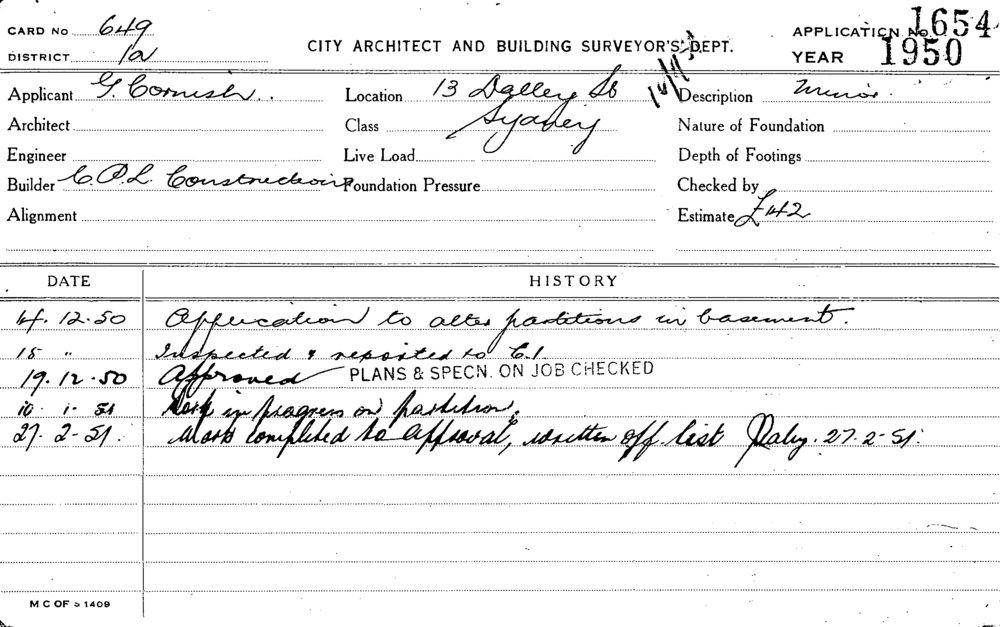 CARD No 649
DISTRICT 1a
CITY ARCHITECT AND BUILDING SURVEYOR'S DEPT.
APPLICATION No. 1654
YEAR 1950
Applicant G. Cornish
Location 13 Dalley St
Sydney
Description Minor
Architect
Class
Nature of Foundation
Engineer
Live Load
Depth of Footings
Builder C.P.L. Construction
Foundation Pressure
Checked by
Alignment
Estimate £42
DATE HISTORY
14.12.50 Application to alter partitions in basement.
15 " Inspected & reported to C.I.
19.12.50 Approved PLANS & SPECN. ON JOB CHECKED
10.1.51 Work in progress on partition.
27.2-51. Work completed to approval, written off list Daly. 27.2-51.
M C OF S 1409